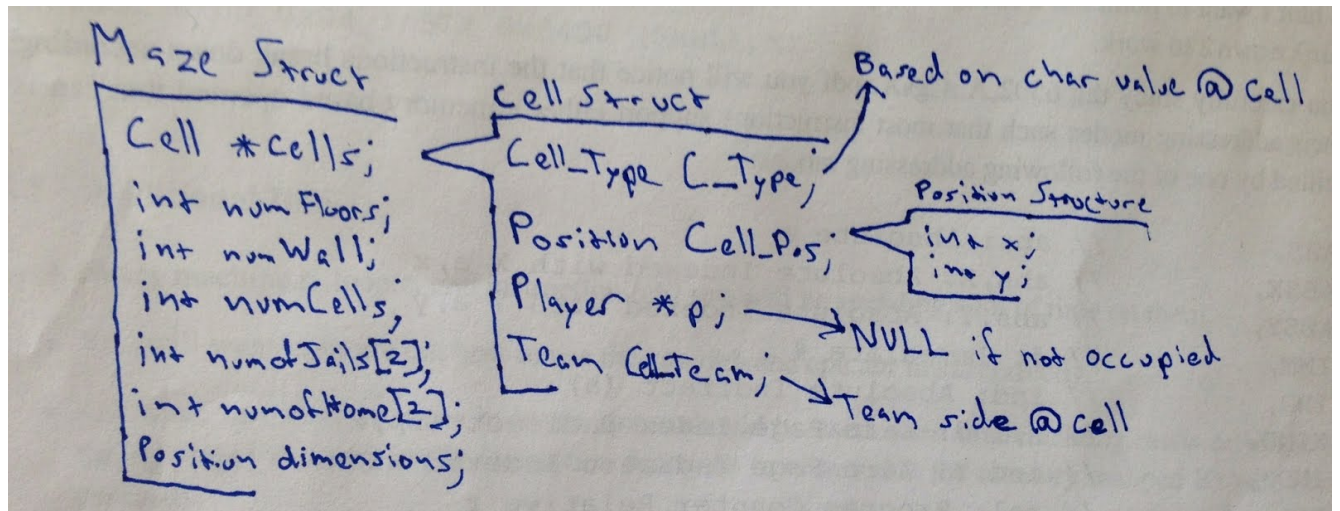 Maze Struct
Cell *cells;
int numFloors;
int numWall;
int numCells;
int numofJails[2];
int numofHome[2];
Position dimensions;
Cell Struct
Cell_Type C_Type;
Position Cell_Pos;
Player *p;
Team Cell_Team;
Based on char value @ Cell
Position Structure
int x;
int y;
NULL if not occupied
Team side @ cell